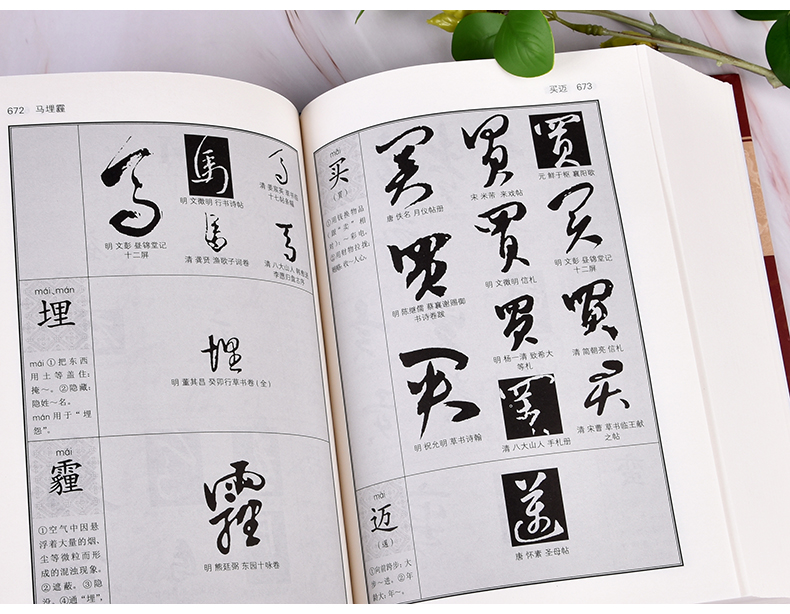 672 马埋霾
明 文彭 昼锦堂记
十二屏
明 文徵明 行书诗帖
十七帖条幅
清 龚贤 渔歌子词卷
mái、mán
埋
mái ①把东西
用土等盖住：
掩～。②隐藏：
隐姓～名。
mán 用于“埋
怨”。
埋
明 董其昌 癸卯行草书卷(全)
mái
霾
①空气中因悬
浮着大量的烟、
尘等微粒而形
成的混浊现象。
②遮蔽。③隐
没。④通“埋”，
霾
明 熊廷弼 东园十咏卷
买迈 673
mǎi
买
(買)
①用钱换物品
(跟“卖”相
对)：～彩电。
②用财物拉拢：
收～人心。
买
唐 佚名 月仪帖册
買
宋 米芾 来戏帖
買
元 鲜于枢 襄阳歌
買
明 陈继儒 蔡襄谢赐御
书诗卷跋
買
明 文徵明 信札
买
明 文彭 昼锦堂记
十二屏
買
明 杨一清 致希大
等札
買
清 简朝亮 信札
买
明 祝允明 草书诗翰
清 八大山人 手札册
清 宋曹 草书临王献
之帖
mài
迈
(邁)
①向前跨步：大
步～进。②年
龄大：年～。
邁
唐 怀素 圣母帖